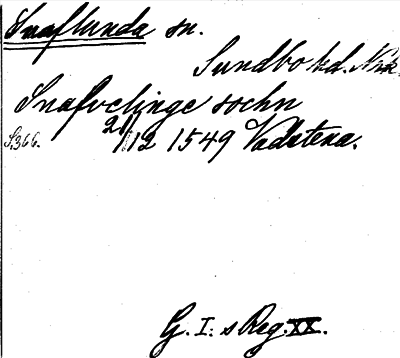 Snaflunda sn.
Sundbo hd. Nrk
Snafvelinge sochn
S.366. 21/12 1549 Vadstena.
G. I:s Reg. XX.